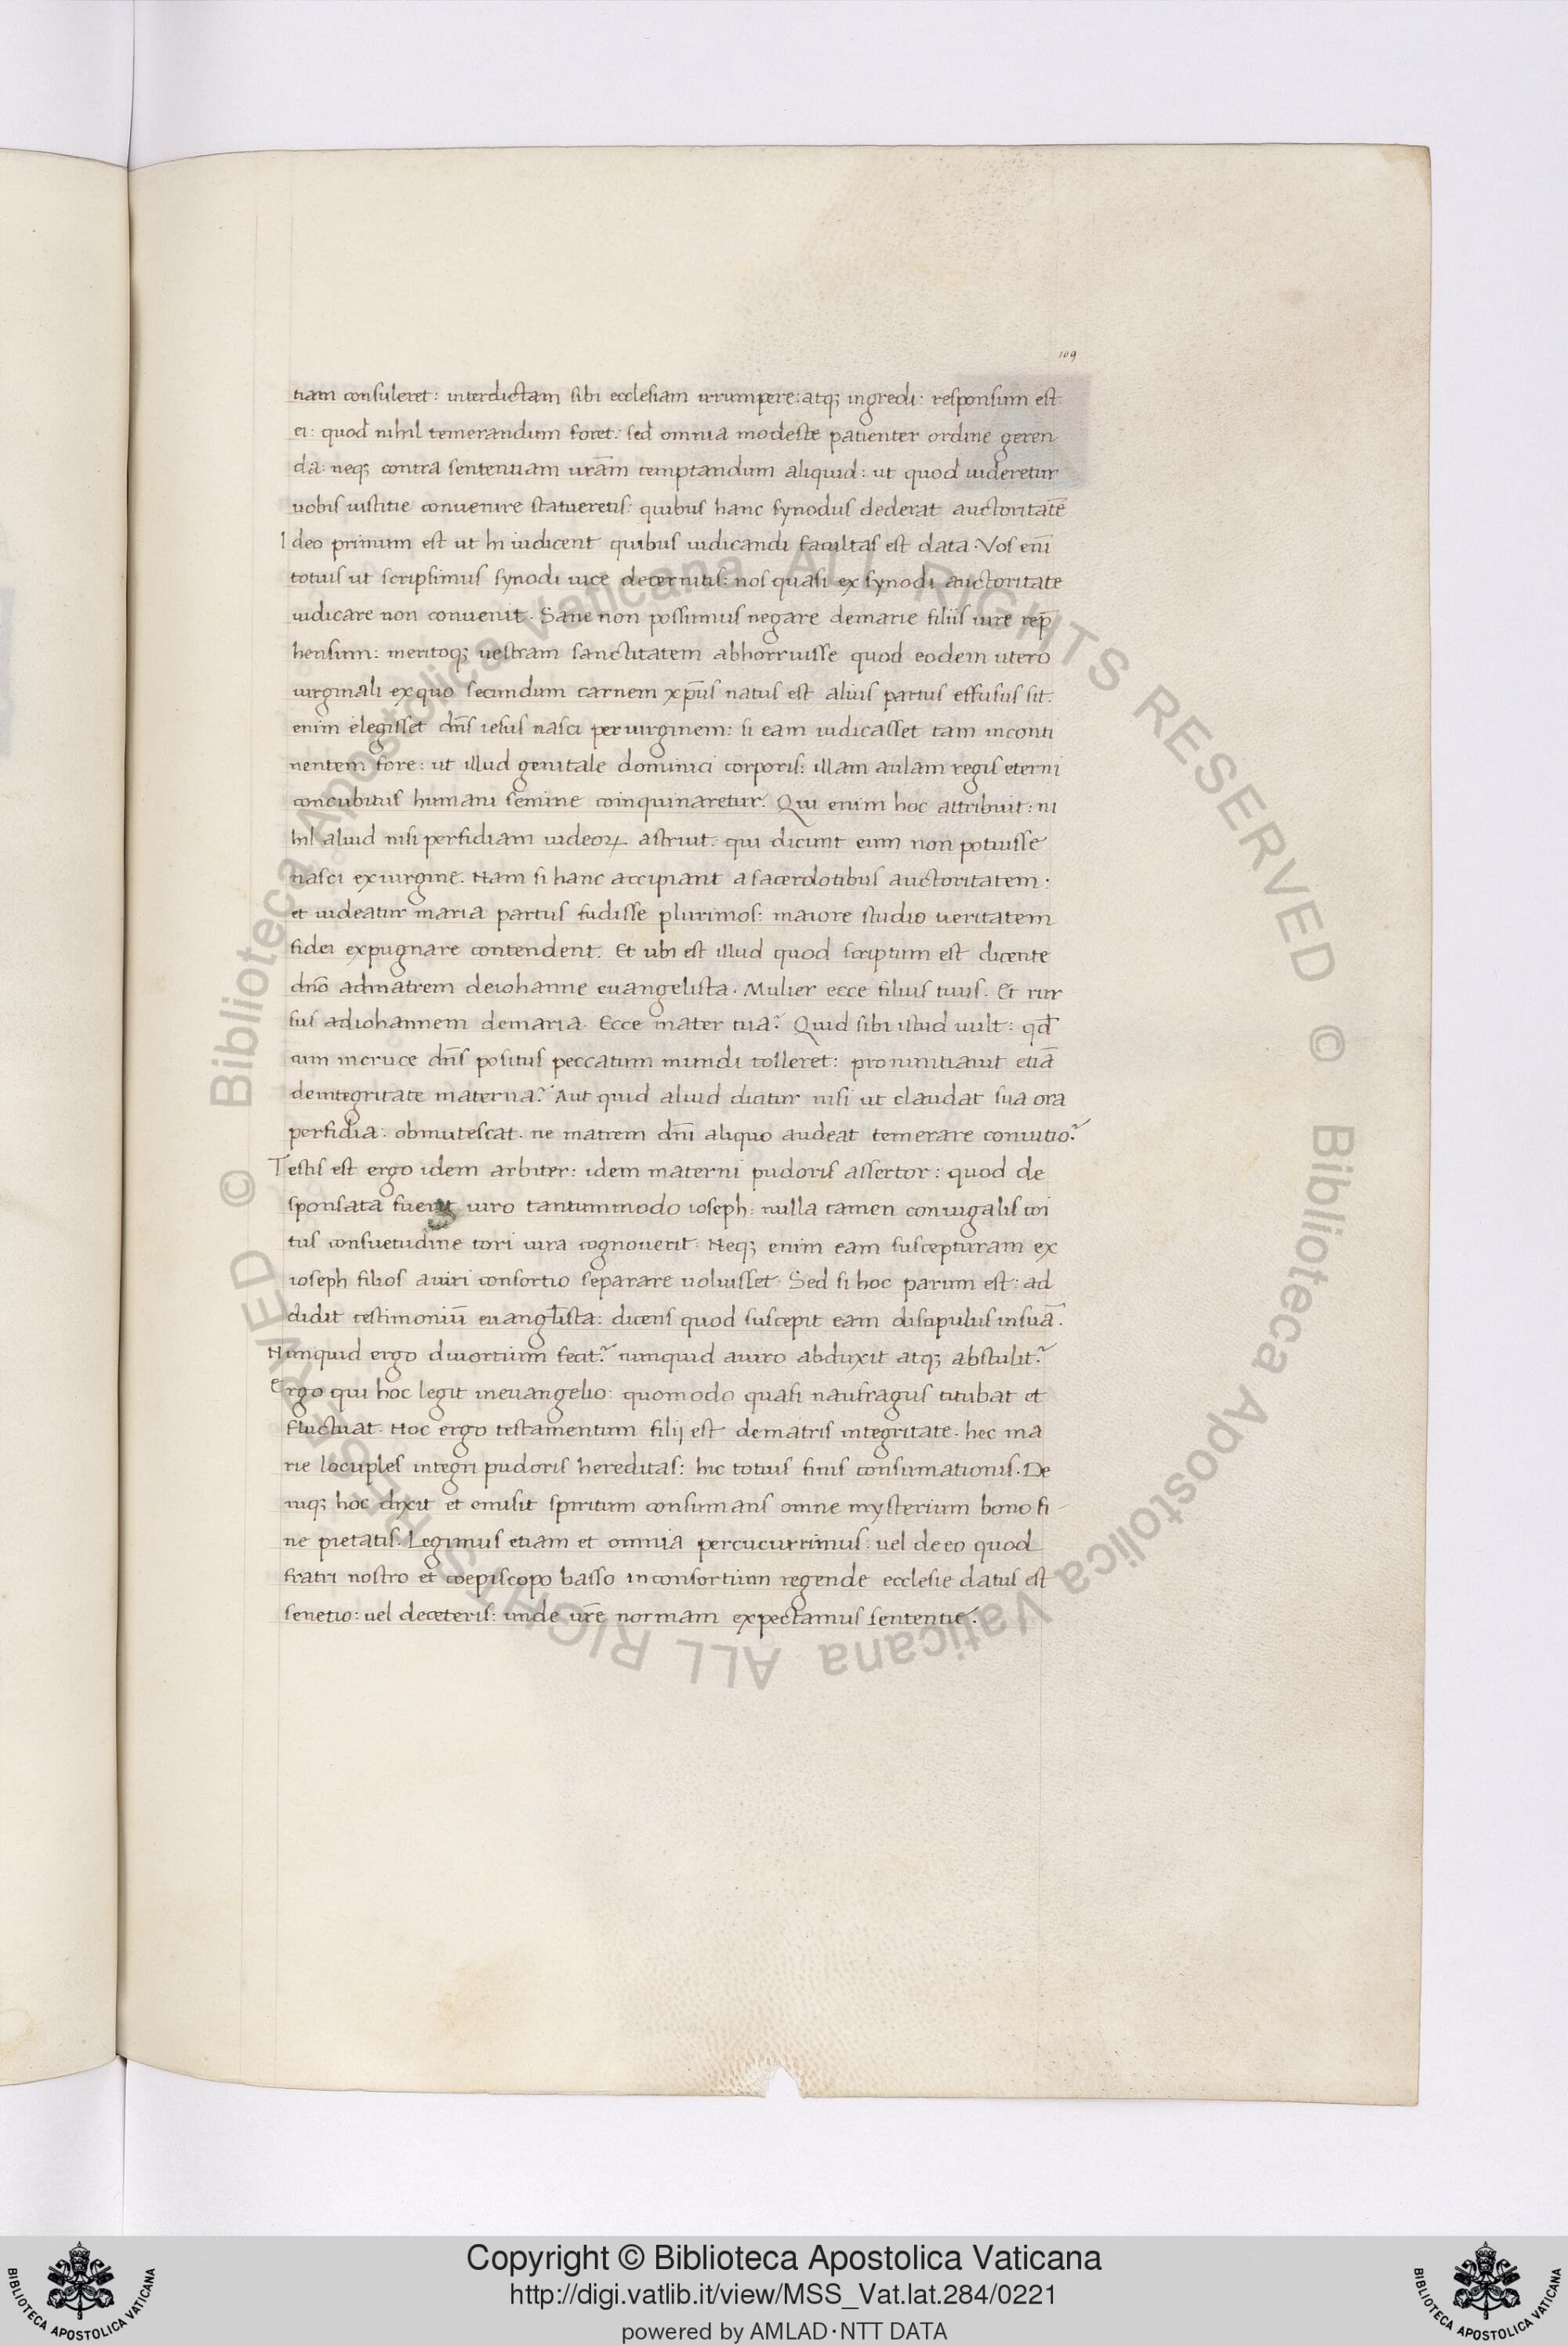 109
tiam consuleret: interdictam sibi ecclesiam irrumpere: atq; ingredi· responsum est
ei: quod nihil temerandum foret: sed omnia modeste patienter ordine geren
da: neq; contra sententiam urãm temptandum aliquid: ut quod uideretur
uobis iustitie conuenire statueretis: quibus hanc synodus dederat auctoritatẽ
Ideo primum est ut hi iudicent quibus iudicandi facultas est data. Vos enĩ
totius ut scripsimus synodi uice decernitis: nos quasi ex synodi auctoritate
iudicare non conuenit. Sane non possumus negare demarie filiis iure rep̃
hensum: meritoq; uestram sanctitatem abhorruisse quod eodem utero
uirginali exquo secundum carnem xp̃us natus est alius partus effusus sit.
enim elegisset dñs iesus nasci peruirginem: si eam iudicasset tam inconti
nentem fore: ut illud genitale dominici corporis: illam aulam regis eterni
concubitus humani semine coinquinaretur. Qui enim hoc attribuit: ni
hil aliud nisi perfidiam iudeoꝝ astruit. qui dicunt eum non potuisse
nasci exuirgine. Nam si hanc accipiant asacerdotibus auctoritatem·
et uideatur maria partus fudisse plurimos: maiore studio ueritatem
fidei expugnare contendent. Et ubi est illud quod scriptum est dicente
dnõ admatrem deiohanne euangelista. Mulier ecce filius tuus. Et rur
sus adiohannem demaria. Ecce mater tua? Quid sibi istud uult: qd̃
cum incruce dñs positus peccatum mundi tolleret: pronuntiauit etiã
deintegritate materna? Aut quid aliud dicitur nisi ut claudat sua ora
perfidia: obmutescat· ne matrem dñi aliquo audeat temerare conuitio?
Testis est ergo idem arbiter: idem materni pudoris assertor: quod de
sponsata fuerit uiro tantummodo ioseph: nulla tamen coniugalis coi
tus consuetudine tori iura cognouerit· Neq; enim eam suscepturam ex
ioseph filios auiri consortio separare uoluisset· Sed si hoc parum est: ad
didit testimoniũ euangl̃ista: dicens quod suscepit eam discipulus insuã.
Nunquid ergo diuortium fecit? nunquid auiro abduxit atq; abstulit?
Ergo qui hoc legit ineuangelio: quomodo quasi naufragus titubat et
fluctuat. Hoc ergo testamentum filij est dematris integritate. hec ma
rie locuples integri pudoris hereditas: hic totius finis consumationis. De
niq; hoc dixit et emisit spiritum consumans omne mysterium bono fi
ne pietatis. Legimus etiam et omnia percucurrimus: uel deeo quod
fratri nostro et coepiscopo basso inconsortium regende ecclesie datus est
senetio: uel deceteris: unde ur̃e normam expectamus sententie.
© Biblioteca Apostolica Vaticana ALL RIGHTS RESERVED © Biblioteca Apostolica Vaticana ALL RIGHTS RESERVED
Copyright © Biblioteca Apostolica Vaticana
http://digi.vatlib.it/view/MSS_Vat.lat.284/0221
powered by AMLAD·NTT DATA
BIBLIOTECA APOSTOLICA VATICANA
BIBLIOTECA APOSTOLICA VATICANA